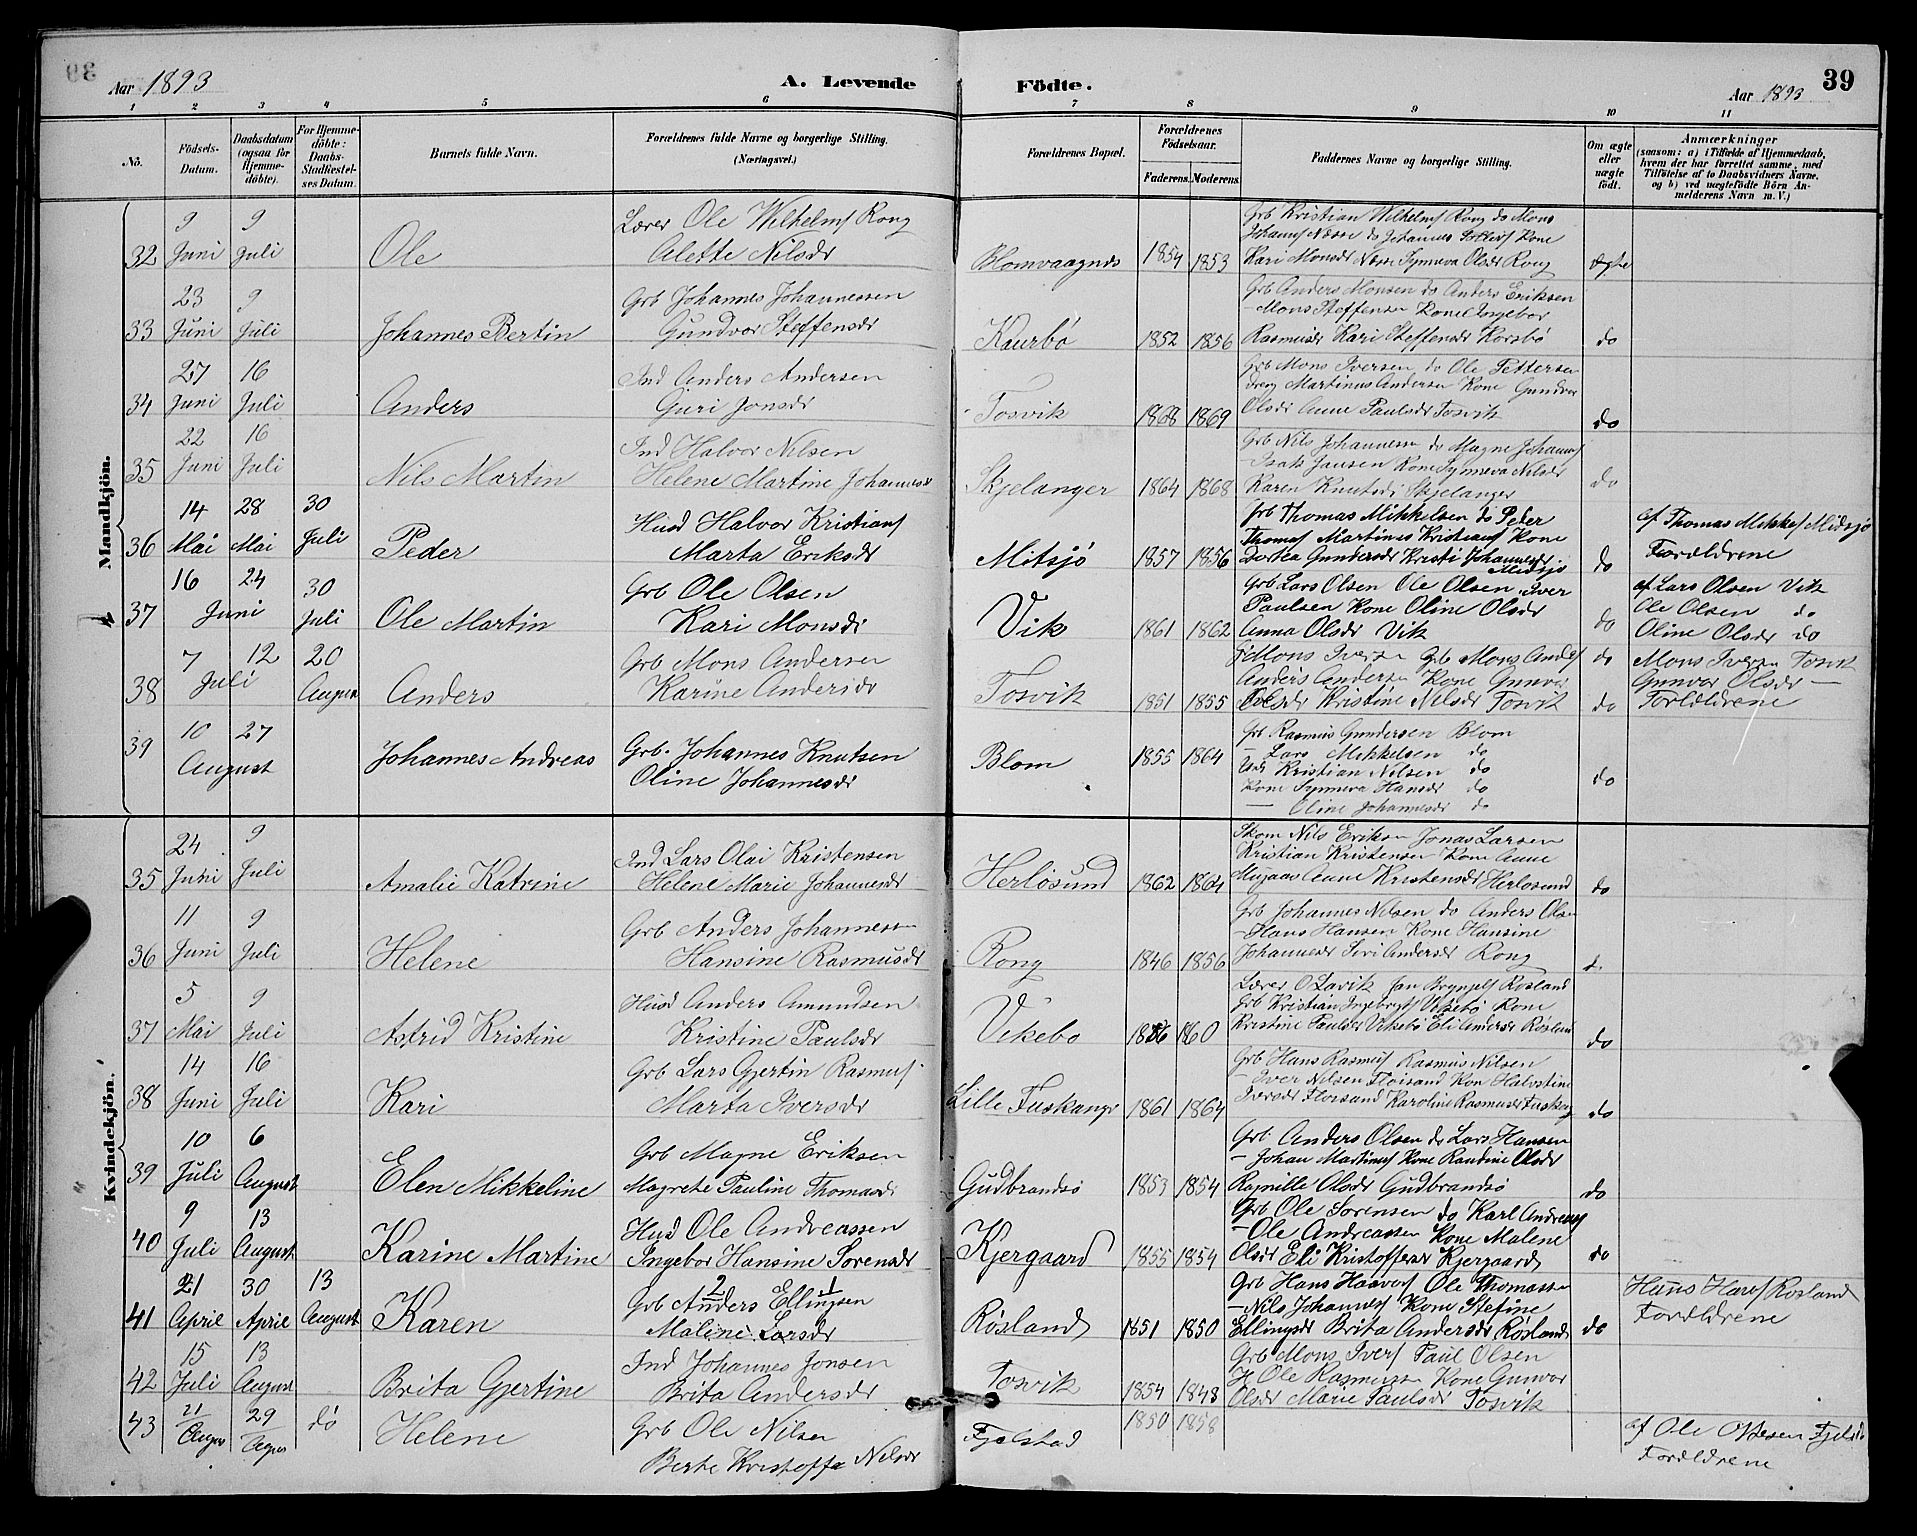 Aar 1893
A. Levende Födte.
Aar 1893
39
1 2 3 4 5 6 7 8 9 10 11
No.
Födsels-Datum.
Daabsdatum (ogsaa for Hjemme-döbte).
For Hjemme-döbte: Daabs-Stadfæstel-ses Datum.
Barnets fulde Navn.
Forældrenes fulde Navne og borgerlige Stilling. (Næringsvei.)
Forældrenes Bopæl.
Forældrenes Födselsaar.
Faderens. Moderens.
Faddernes Navne og borgerlige Stilling.
Om ægte eller uægte født.
Anmærkninger
(saasom: a) i Tilfælde af Hjemmedaab, hvem der har forrettet samme, med Tilföielse af to Daabsvidners Navne, og b) ved uægtefödte Börn An-melderens Navn m. V.)
Mandkjön.
32 9 Juni 9 Juli Ole
Lærer Ole Wilhelms Rong
Alette Nilsdr
Blomvaagnes 1854 1853
Grb Kristian Wilhelms Rong do Mons
Kari Monsdr Nesse Synneva Olsdr Rong
ægte
33 23 Juni 9 Juli Johannes Bertin
Grb Johannes Johannessen
Gundvor Steffensdr
Kaurbø 1852 1856
Grb Anders Monsen do Anders Eriksen
Mons Steffensen Kone Ingebor
Rasmusdr Kari Steffensdr Korsbø
do
34 27 Juni 16 Juli Anders
Ind Anders Andersen
Guri Jonsdr
Tosvik 1868 1869
Grb Mons Iversen do Ole Pettersen
dreng Martinus Andersen Kone Gundvor
Olsdr Anne Paulsdr Tosvik
do
35 22 Juni 16 Juli Nils Martin
Ind Halvor Nilsen
Helene Martine Johannesdr
Skjelanger 1864 1868
Grb Nils Johannessen do Magne Johanns
Isak Jansen Kone Synneva Nilsdr
Karen Knutsdr Skjelanger
do
36 14 Mai 28 Mai 30 Juli Peder
Husd Halvor Kristians
Marta Eriksdr
Mitsjø 1857 1856
Grb Thomas Mikkelsen do Peder
Thomas Martinus Kristians Kone
Dortea Gundersdr Kristi Johannesdr Midsjø
do
af Thomas Mikkels Midsjø
Forældrene
37 16 24 Juni 30 Juli Ole Martin
Grb Ole Olsen
Kari Monsdr
Vik 1861 1862
Grb Lars Olsen Ole Olsen Iver
Paulsen Kone Oline Olsdr
Anna Olsdr Vik
do
af Lars Olsen Vik
Ole Olsen do
Oline Olsdr do
38 7 12 Juli 20 August Anders
Grb Mons Andersen
Karine Andersdr
Tosvik 1851 1855
Mons Iversen Grb Mons Anders
Anders Andersen Kone Gunvor
Olsdr Kristine Nilsdr Tosvik
do
do
Mons Iversen Tosvik
Gunvor Olsdr —
Forældrene
39 10 27 August Johannes Andreas
Grb. Johannes Knutsen
Oline Johannesdr
Blom 1855 1864
Grb Rasmus Gundersen Blom
— Lars Mikkelsen do
Kristian Nilsen do
Kone Synneva Hansdr do
— Oline Johannesdr do
do
Kvindekjön.
35 24 Juni 9 Juli Amalie Katrine
Ind Lars Olai Kristensen
Helene Marie Johannesdr
Herløsund 1862 1864
Skom Nils Eriksen Jonas Larsen
Kristian Kristensen Kone Anne
Anne Kristensdr Herløsund
do
36 11 Juni 9 Juli Helene
Grb Anders Johannessen
Hansine Rasmusdr
Rong 1846 1856
Grb Johannes Nilsen do Anders Olsen
— Hans Hansen Kone Hansine
Johannesdr Siri Andersdr Rong
37 5 Mai 9 Juli Astrid Kristine
Husd Anders Amundsen
Kristine Paulsdr
Vikebø 1860
Lærer O Lavik Jan Brynjels Røsland
Grb Kristian Ingebrigts Vikebø Kone
Kristine Paulsdr Vikebø Eli Andersdr Røsland
do
38 14 Juni 16 Juli Kari
Grb Lars Gjertin Rasmus
Marta Iversdr
Lille Fuskanger 1861 1864
Grb Hans Rasmus Rasmus Nilsen
— Iver Nilsen Floisand Kone Halvstine
Iversdr Floisand Karoline Rasmusdr
do
39 10 Juli 6 August Elen Mikkeline
Grb Magne Eriksen
Magrete Pauline Thomasdr
Gudbrandsø 1853 1854
Grb Anders Olsen do Lars Hansen
— Johan Martinus Kone Randine Olsdr
Ragnille Olsdr Gudbrandsø
do
40 9 Juli 13 August Karine Martine
Husd Ole Andreassen
Ingebor Hansine Sorensdr
Kjergaard 1855 1854
Grb Ole Sorensen do Karl Andreas
— Ole Andreassen Kone Malene
Olsdr Eli Kristoffersdr Kjergaard
do
41 21 April 30 April 13 August Karen
Grb Anders 2 Ellingsen 1
Malene Larsdr
Røsland 1851 1850
Grb Hans Haavors Ole Thomassen
— Nils Johannes Kone Stefine
Ellingsdr Brita Andersdr Røsland
do
Hans Røsland
Forældrene
42 15 Juli 13 August Brita Gjertine
Ind Johannes Jonsen
Brita Andersdr
Tosvik 1854 1848
Grb Mons Ivers Paul Olsen
Ole Rasmussen Kone Gunvor
Olsdr Marie Paulsdr Tosvik
43 21 Augus 29 Augus do Helene
Grb Ole Nilsen
Berte Kristoffa Nilsdr
Fjelstad 1850 1858
af Ole
Forældrene